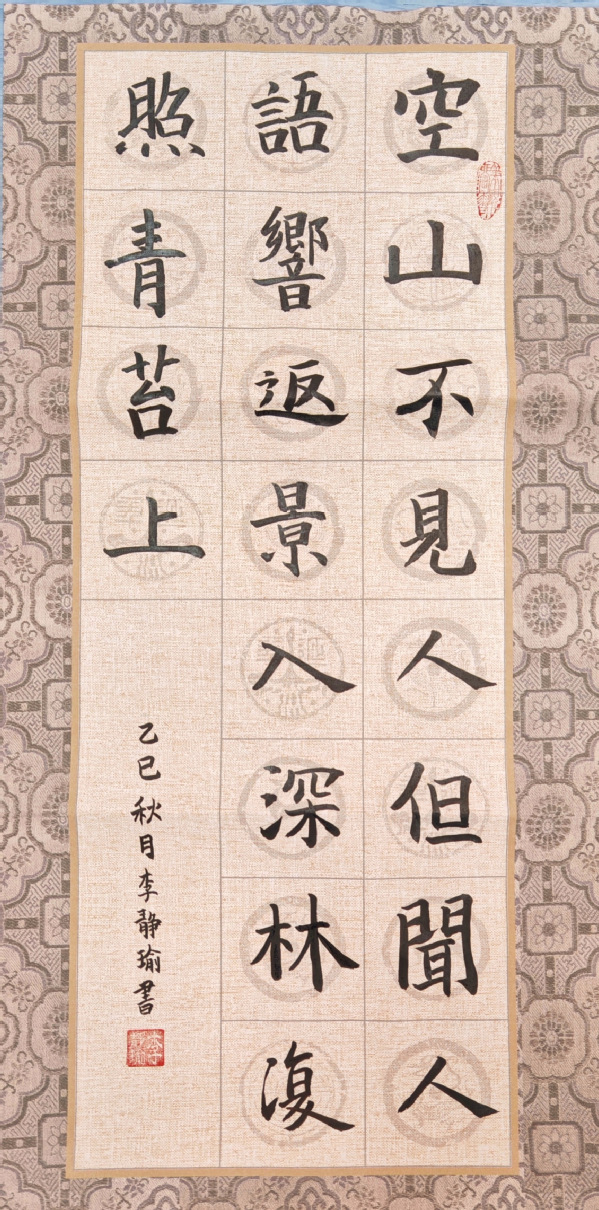 空山不見人但聞人
語響返景入深林復
照青苔上
乙巳秋月李静瑜書